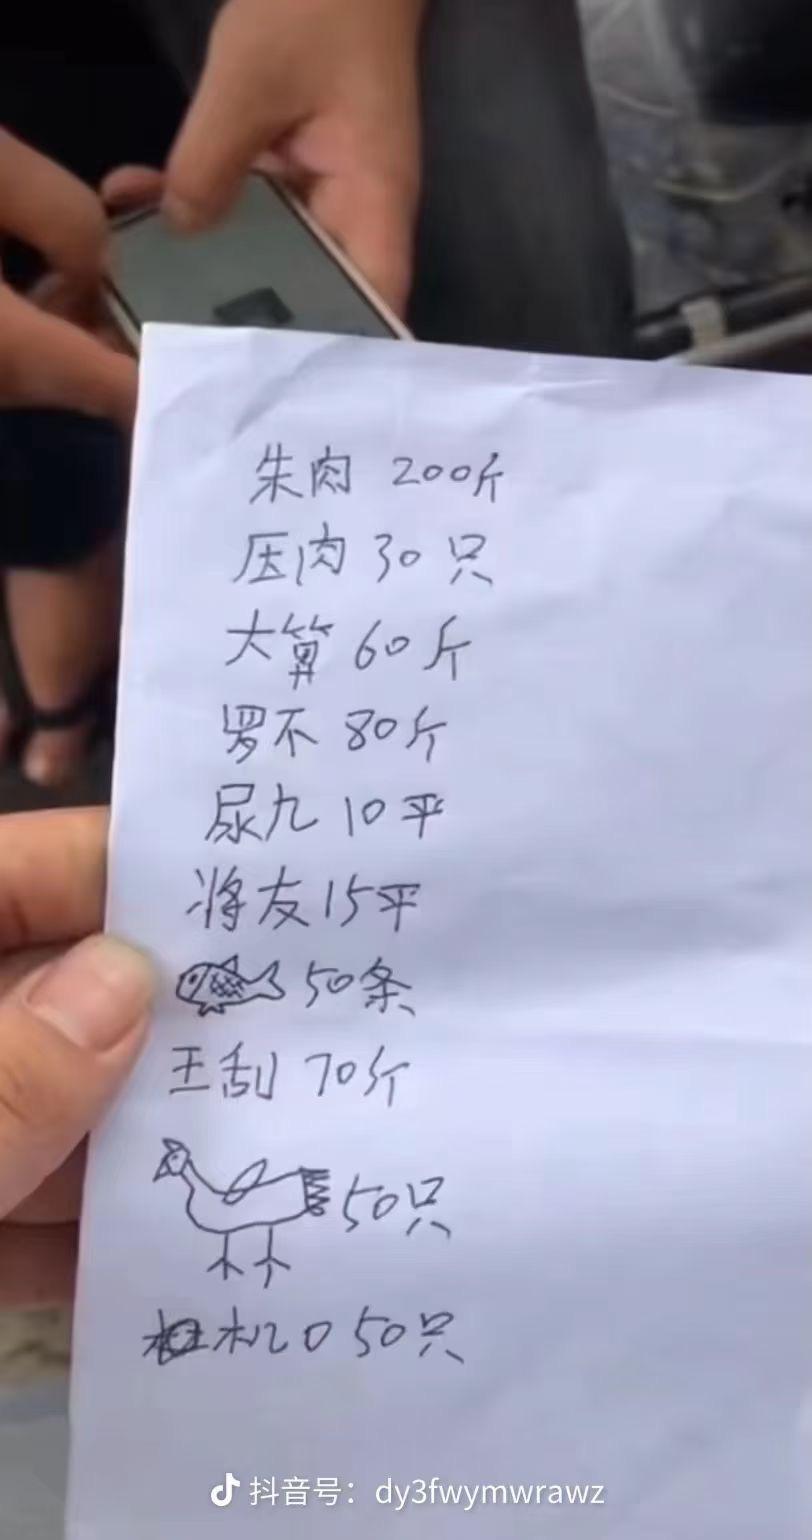 朱肉 200斤
压肉 30只
大算 60斤
罗不 80斤
尿九 10平
将友 15平
50条
王刮 70斤
50只
机口 50只
抖音号：dy3fwymwrawz